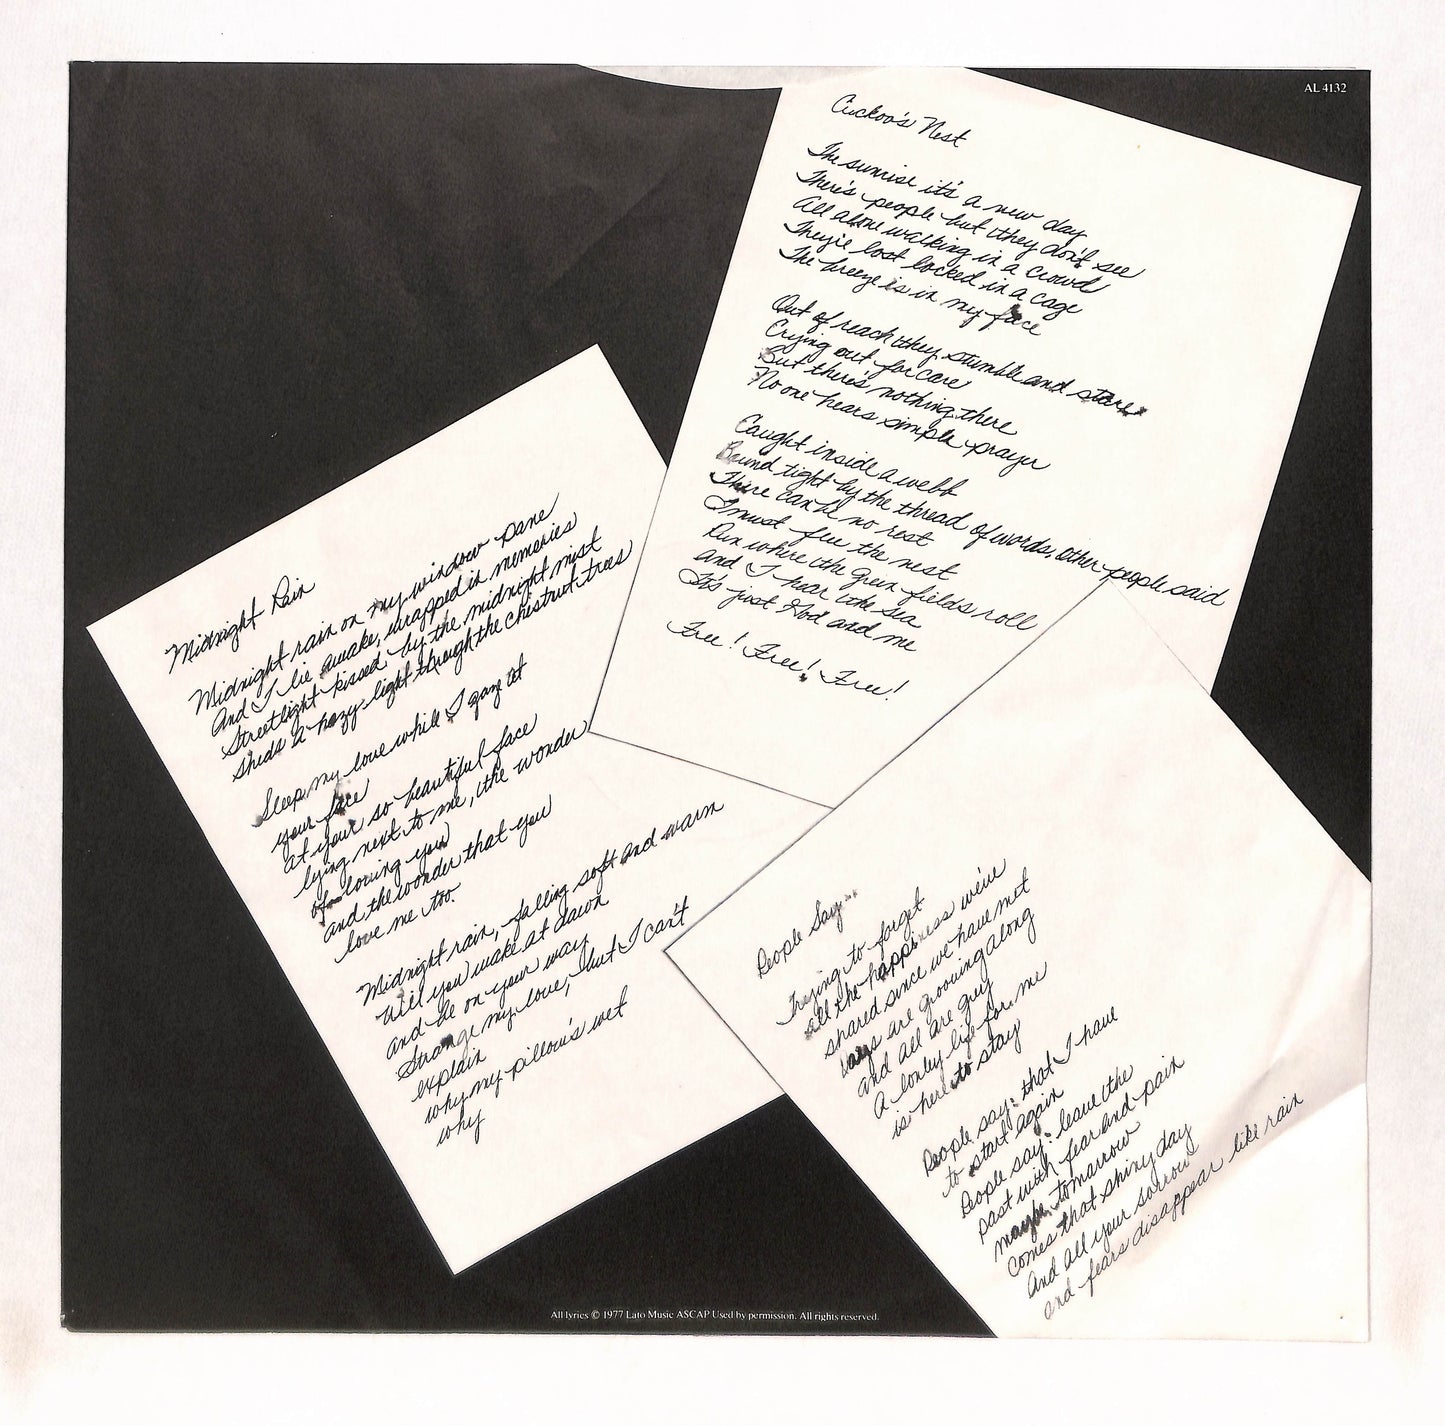 AL 4132
Cuckoo's Nest
The sunrise it's a new day
There's people but they don't see
All alone walking in a crowd
They're lost locked in a cage
The breeze is in my face
Out of reach they stumble and stare
Crying out for care
But there's nothing there
No one hears simple prayer
Caught inside a webb
Bound tight by the thread of words, other people said
There can be no rest
I must flee the nest
Run where the green fields roll
and I hear the sea
It's just God and me
Free! Free! Free!
Midnight Rain
Midnight rain on my window pane
And I lie awake, wrapped in memories
Streetlight kissed by the midnight mist
Sheds a hazy light through the chestnut trees
Sleep, my love while I gaze at
your face
at your so beautiful face
lying next to me, the wonder
of loving you
and the wonder that you
love me too.
Midnight rain, falling soft and warm
Will you wake at dawn
and be on your way
Strange my love, but I can't
explain
why my pillow's wet
why
People Say...
Trying to forget
all the happiness we've
shared since we have met
days are grooving along
and all are grey
A lonley life for me
is here to stay
People say: that I have
to start again
People say: leave the
past with fear and pain
maybe tomarrow
comes that shiny day
And all your sorrow
and fears disappear like rain
All lyrics © 1977 Lato Music ASCAP Used by permission. All rights reserved.